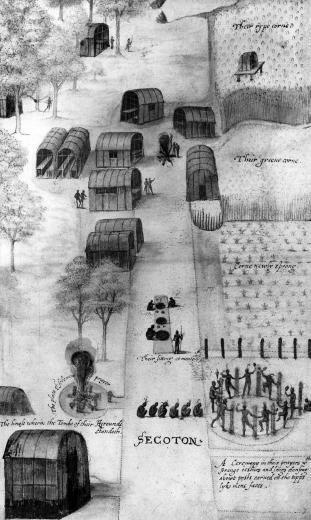 Their rype corne
Their greene corne
Corne newly sprong
Their sitting at meate
The place of solemne prayer
The house wherin the Tombe of their Herounds
standeth.
SECOTON.
A Ceremony in their prayers wt
strange iesturs and songs dansing
abowt posts carued on the topps
lyke mens faces.